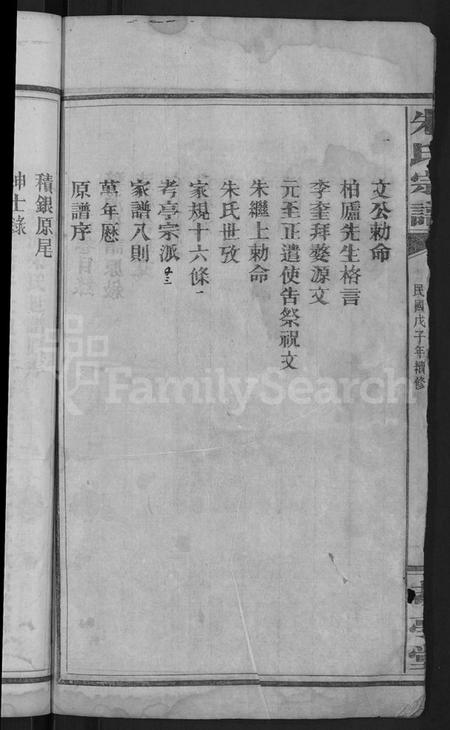 朱氏宗譜
民國戊子年續修
文公勅命
柏廬先生格言
李奎拜婺源文
元至正遣使告祭祝文
朱繼上勅命
朱氏世攷
家規十六條一
考亭宗派
家譜八則
萬年曆
原譜序
積銀原尾
紳士錄
FamilySearch